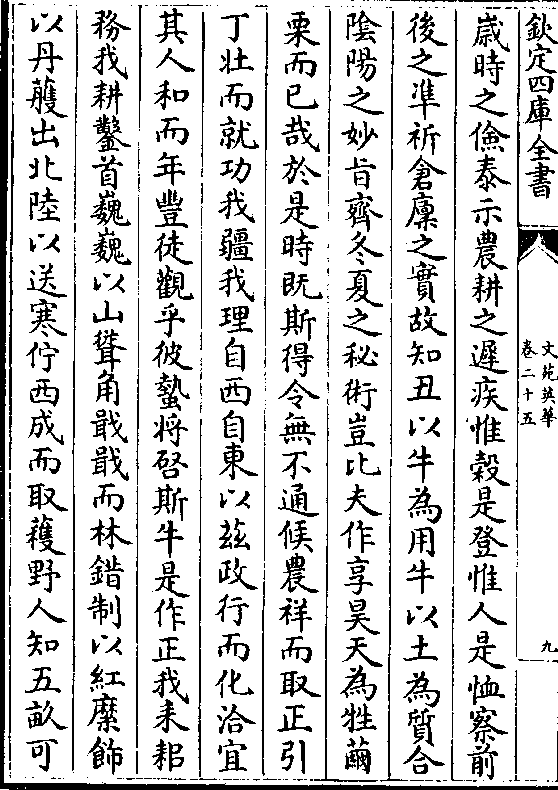 欽定四庫全書
文苑英華
卷二十五
九
歲時之儉泰示農耕之遲疾惟穀是登惟人是恤察前
後之凖祈倉廩之實故知丑以牛為用牛以土為質合
陰陽之妙旨齊冬夏之秘術豈比夫作享昊天為牲繭
栗而已哉於是時既斯得令無不通候農祥而取正引
丁壯而就功我疆我理自西自東以兹政行而化洽宜
其人和而年豐徒觀乎彼蟄將啓斯牛是作正我耒耜
務我耕鑿首巍巍以山聳角戢戢而林錯制以紅縻飾
以丹雘出北陸以送寒佇西成而取穫野人知五畝可